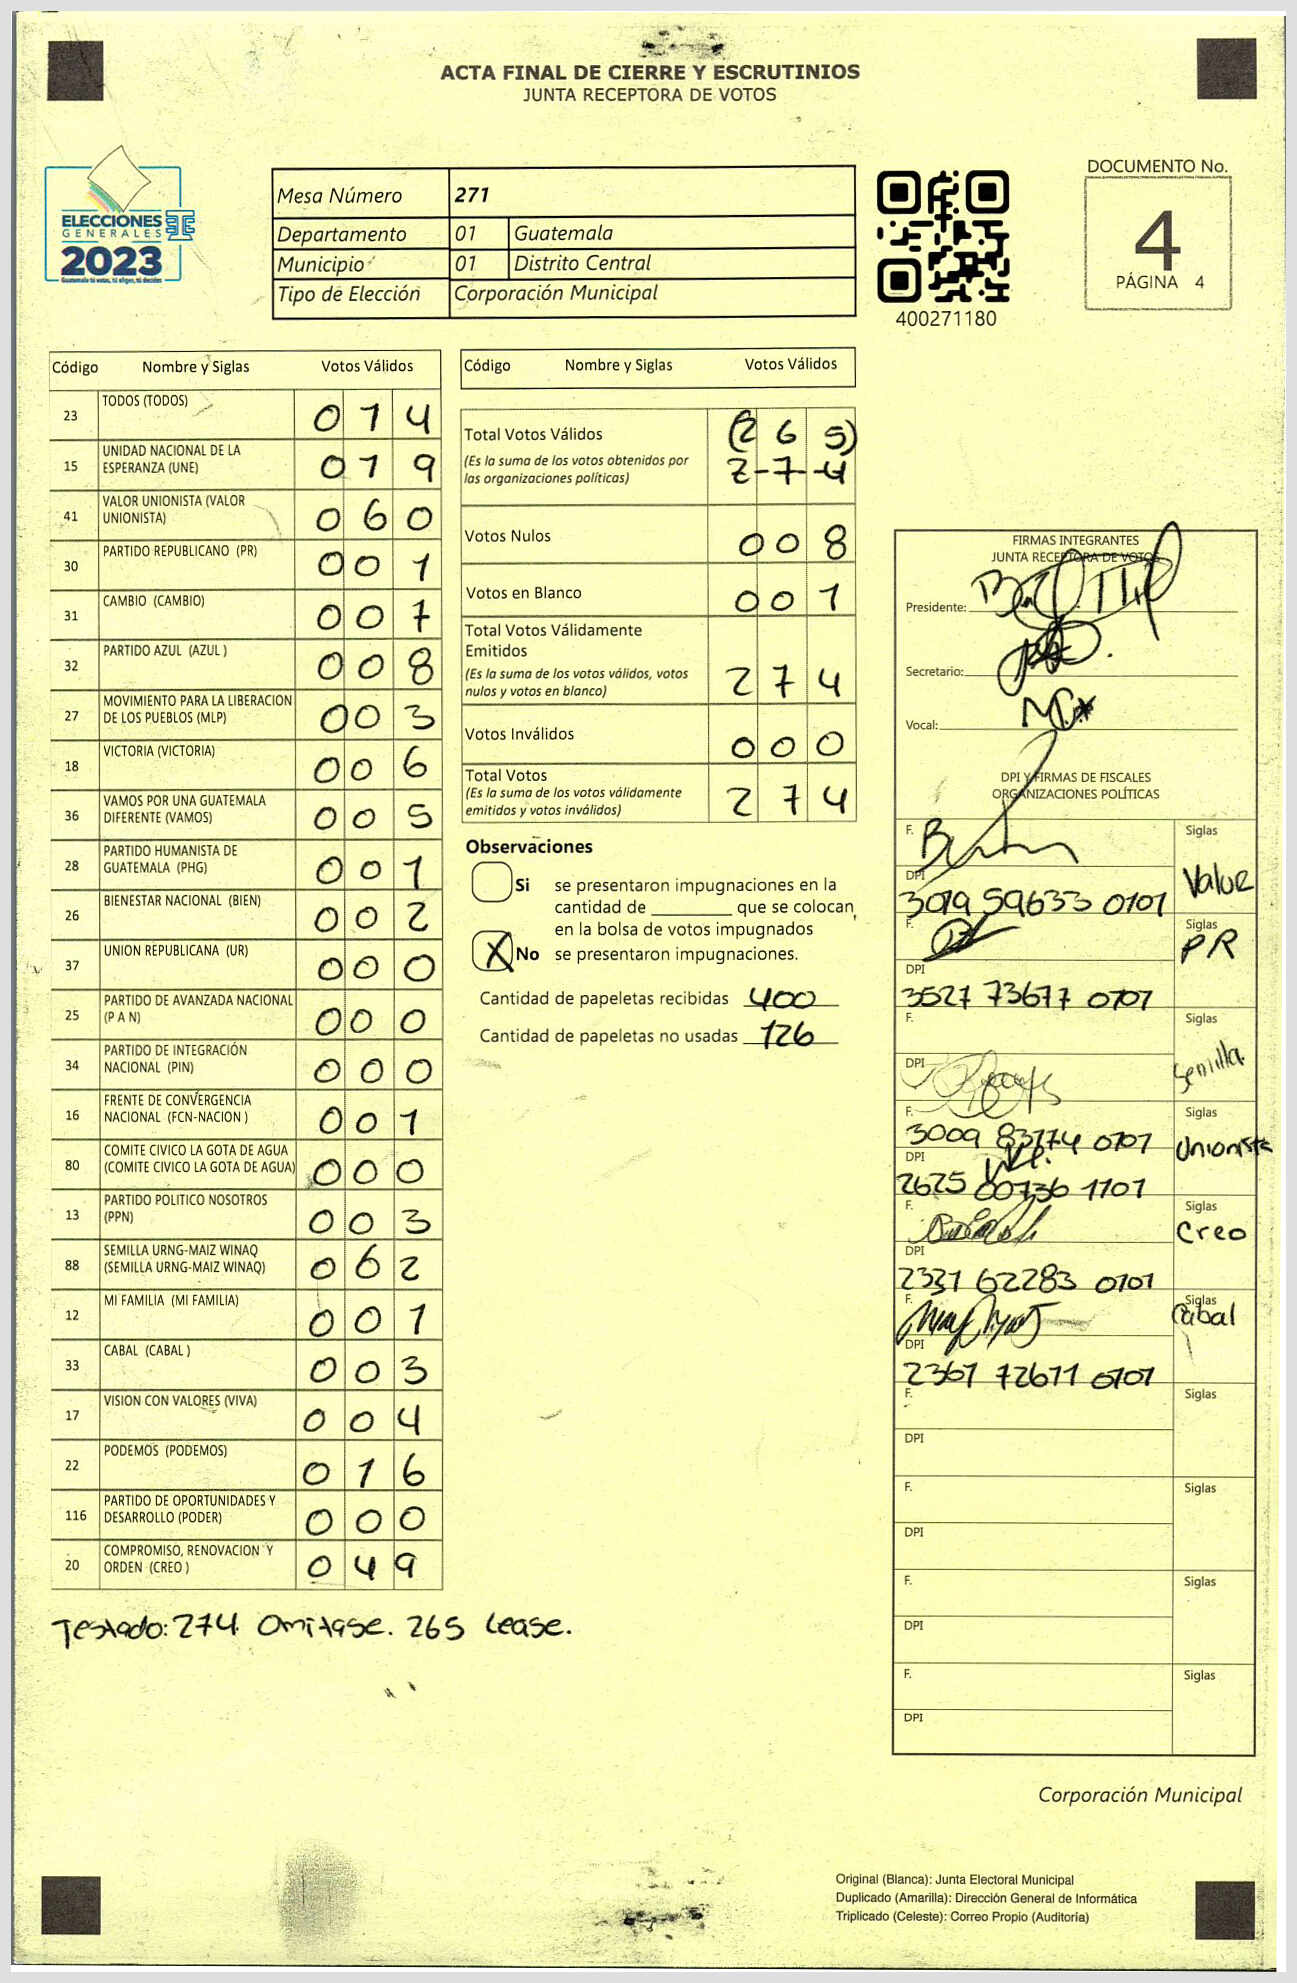 ACTA FINAL DE CIERRE Y ESCRUTINIOS
JUNTA RECEPTORA DE VOTOS
ELECCIONES
GENERALES
2023
Guatemala tú votas, tú eliges, tú decides
Mesa Número 271
Departamento 01 Guatemala
Municipio 01 Distrito Central
Tipo de Elección Corporación Municipal
400271180
DOCUMENTO No.
4
PÁGINA 4
Código Nombre y Siglas Votos Válidos
23 TODOS (TODOS) 0 1 4
15 UNIDAD NACIONAL DE LA
ESPERANZA (UNE) 0 1 9
41 VALOR UNIONISTA (VALOR
UNIONISTA) 0 6 0
30 PARTIDO REPUBLICANO (PR) 0 0 1
31 CAMBIO (CAMBIO) 0 0 7
32 PARTIDO AZUL (AZUL ) 0 0 8
27 MOVIMIENTO PARA LA LIBERACION
DE LOS PUEBLOS (MLP) 0 0 3
18 VICTORIA (VICTORIA) 0 0 6
36 VAMOS POR UNA GUATEMALA
DIFERENTE (VAMOS) 0 0 5
28 PARTIDO HUMANISTA DE
GUATEMALA (PHG) 0 0 1
26 BIENESTAR NACIONAL (BIEN) 0 0 2
37 UNION REPUBLICANA (UR) 0 0 0
25 PARTIDO DE AVANZADA NACIONAL
(P A N) 0 0 0
34 PARTIDO DE INTEGRACIÓN
NACIONAL (PIN) 0 0 0
16 FRENTE DE CONVERGENCIA
NACIONAL (FCN-NACION ) 0 0 1
80 COMITE CIVICO LA GOTA DE AGUA
(COMITE CIVICO LA GOTA DE AGUA) 0 0 0
13 PARTIDO POLITICO NOSOTROS
(PPN) 0 0 3
88 SEMILLA URNG-MAIZ WINAQ
(SEMILLA URNG-MAIZ WINAQ) 0 6 2
12 MI FAMILIA (MI FAMILIA) 0 0 1
33 CABAL (CABAL ) 0 0 3
17 VISION CON VALORES (VIVA) 0 0 4
22 PODEMOS (PODEMOS) 0 1 6
116 PARTIDO DE OPORTUNIDADES Y
DESARROLLO (PODER) 0 0 0
20 COMPROMISO, RENOVACION Y
ORDEN (CREO ) 0 4 9
Testado: 274. Omitase. 265 Lease.
Código Nombre y Siglas Votos Válidos
Total Votos Válidos (2 6 5)
(Es la suma de los votos obtenidos por
las organizaciones políticas) 2-7-4
Votos Nulos 0 0 8
Votos en Blanco 0 0 1
Total Votos Válidamente
Emitidos
(Es la suma de los votos válidos, votos
nulos y votos en blanco) 2 7 4
Votos Inválidos 0 0 0
Total Votos
(Es la suma de los votos válidamente
emitidos y votos inválidos) 2 7 4
Observaciones
Si se presentaron impugnaciones en la
cantidad de ________ que se colocan,
en la bolsa de votos impugnados
X No se presentaron impugnaciones.
Cantidad de papeletas recibidas 400
Cantidad de papeletas no usadas 126
FIRMAS INTEGRANTES
JUNTA RECEPTORA DE VOTOS
Presidente:
Secretario:
Vocal:
DPI Y FIRMAS DE FISCALES
ORGANIZACIONES POLÍTICAS
F. Siglas
DPI Valor
3019 59633 0101
F. Siglas
PR
DPI
3527 73677 0101
F. Siglas
DPI Semilla
F. Siglas
3009 83774 0101 Unionista
DPI
2625 00736 1101
F. Siglas
Creo
DPI
2331 62283 0101
F. Siglas
Cabal
DPI
2367 72671 0101
F. Siglas
DPI
F. Siglas
DPI
F. Siglas
DPI
F. Siglas
DPI
Corporación Municipal
Original (Blanca): Junta Electoral Municipal
Duplicado (Amarilla): Dirección General de Informática
Triplicado (Celeste): Correo Propio (Auditoría)